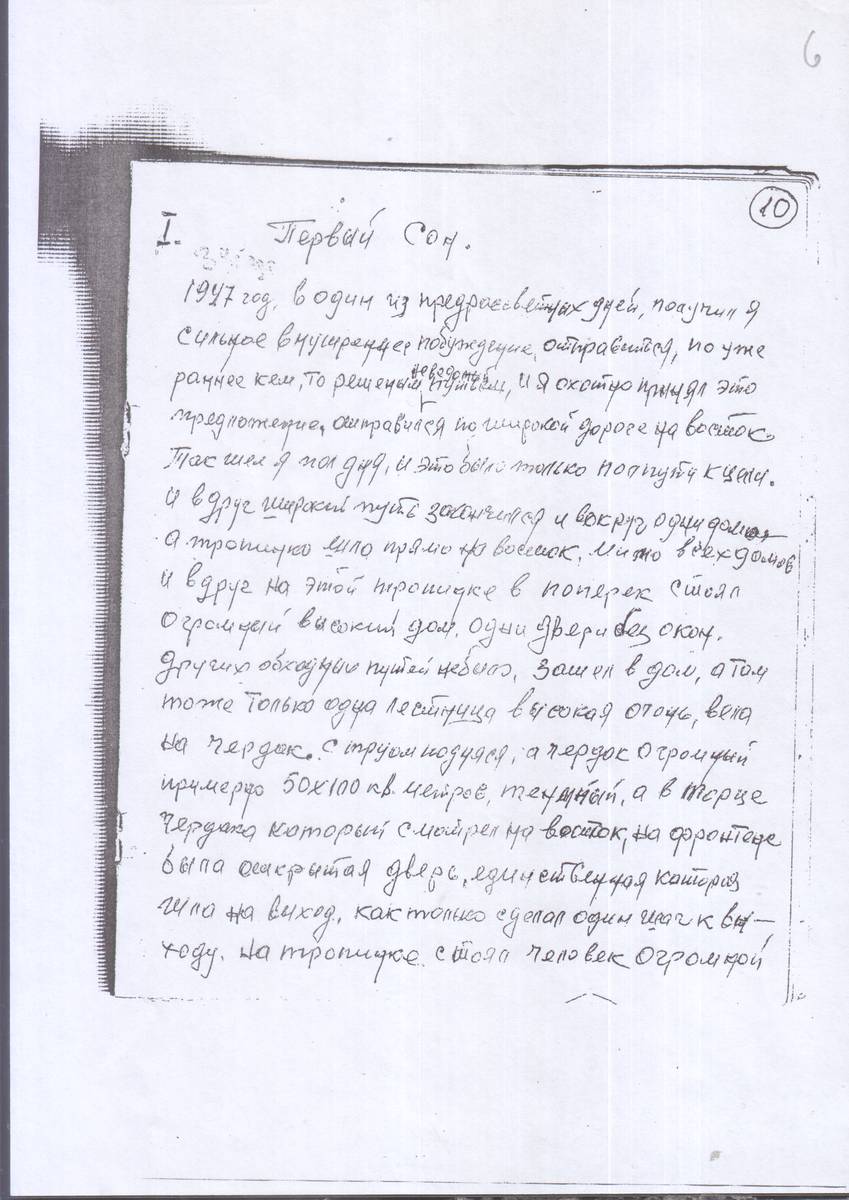 6
10
I. Первый Сон.
1947 год, в один из предрассветных дней, получил я
сильное внутреннее побуждение, отправиться, по уже
раннее кем, то решеным неведомым путьём, и я охотно принял это
предложение, отправился по широкой дороге на восток.
Так шел я пол дня, и это было только пол пути к цели.
и вдруг широкий путь закончился и вокруг одни дома
а тропинка шла прямо на восток, мимо всех домов
и вдруг на этой тропинке в поперек стоял
огромный высокий дом, одни двери без окон.
других обходных путей небыло, зашел в дом, а там
тоже только одна лестница высокая очень, вела
на чердак. с трудом поднялся, а чердак огромный
примерно 50х100 кв. метров, темный, а в торце
чердака который смотрел на восток, на фронтоне
была открытая дверь, единственная которая
шла на выход, как только сделал один шаг к вы-
ходу. на тропинке стоял человек огромной